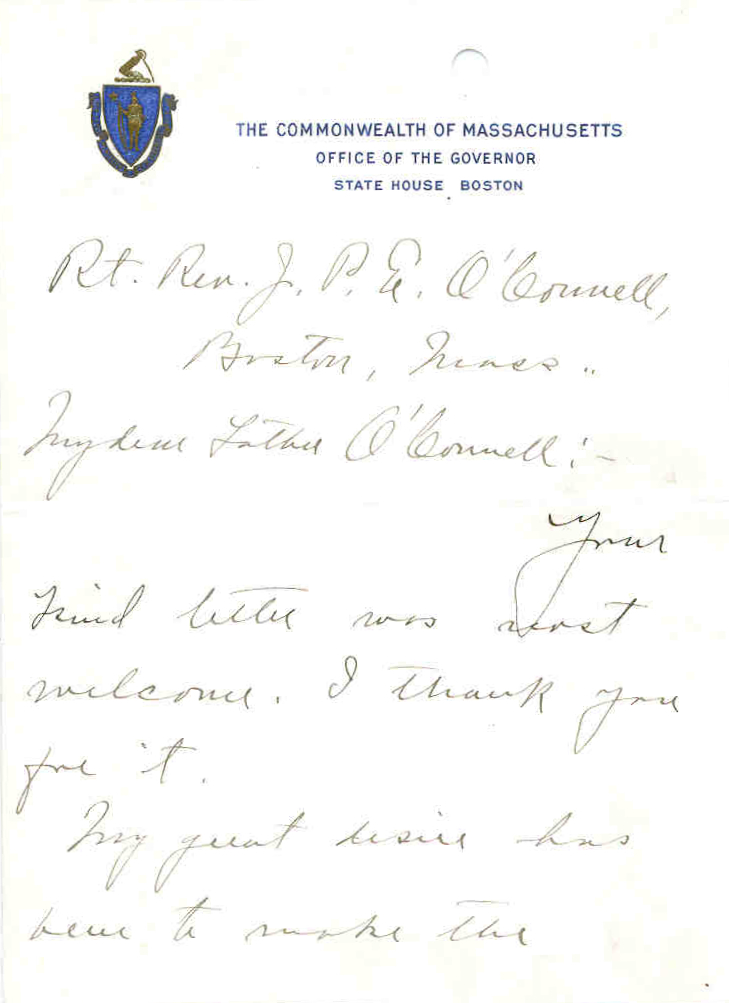 THE COMMONWEALTH OF MASSACHUSETTS
OFFICE OF THE GOVERNOR
STATE HOUSE BOSTON
Rt. Rev. J. P. E. O'Connell,
Boston, Mass..
My dear Father O'Connell:-
Your
kind letter was most
welcome. I thank you
for it.
My great desire has
been to make the